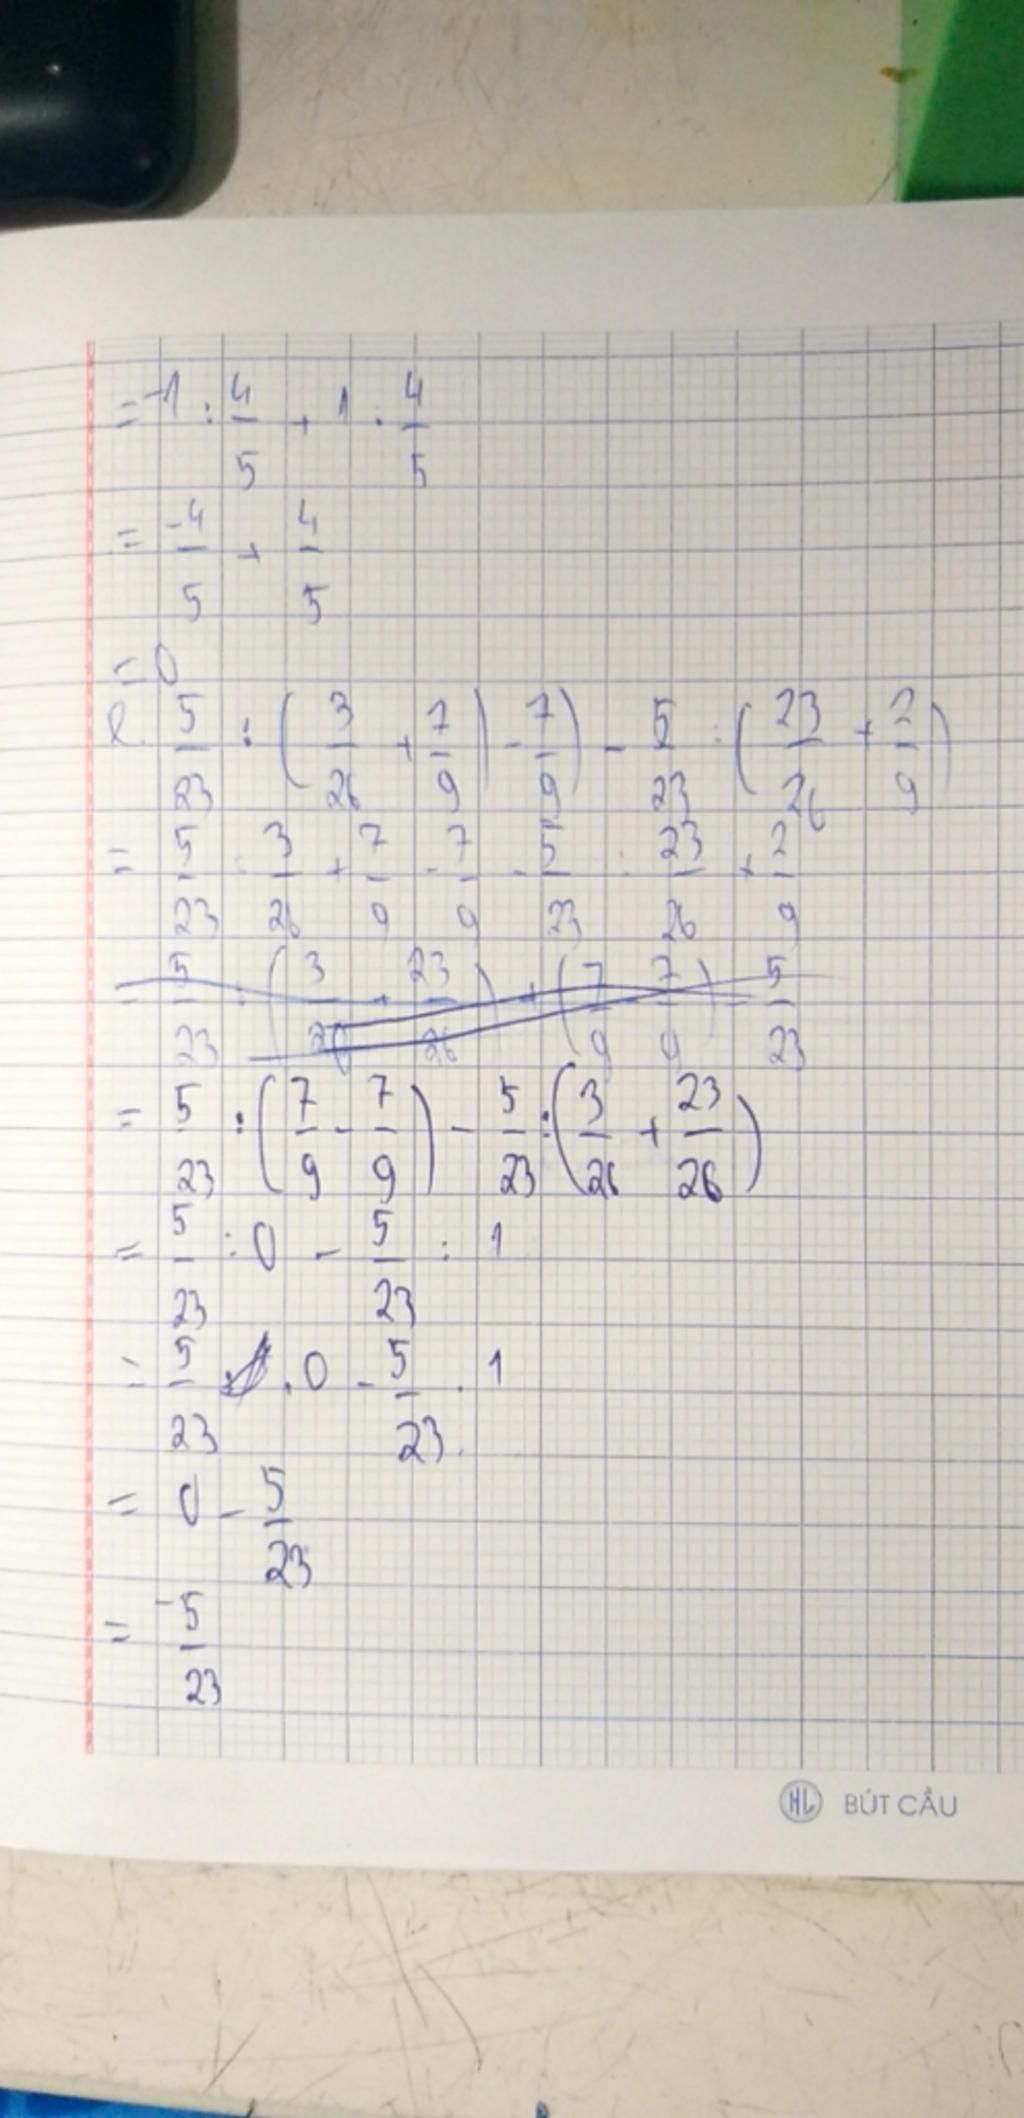 = -1 : 4/5 + 1 : 4/5
= -4/5 + 4/5
= 0
2. 5/23 : (3/26 + 7/9) - 7/9) - 5/23 : (23/26 + 2/9)
= 5/23 : 3/26 + 7/9 - 7/9 - 5/23 : 23/26 + 2/9
= 5/23 : (3/26 + 23/26) + (7/9 - 7/9) - 5/23
= 5/23 : (7/9 - 7/9) - 5/23 : (3/26 + 23/26)
= 5/23 : 0 - 5/23 : 1
= 5/23 . 0 - 5/23 . 1
= 0 - 5/23
= -5/23
HL BÚT CẦU